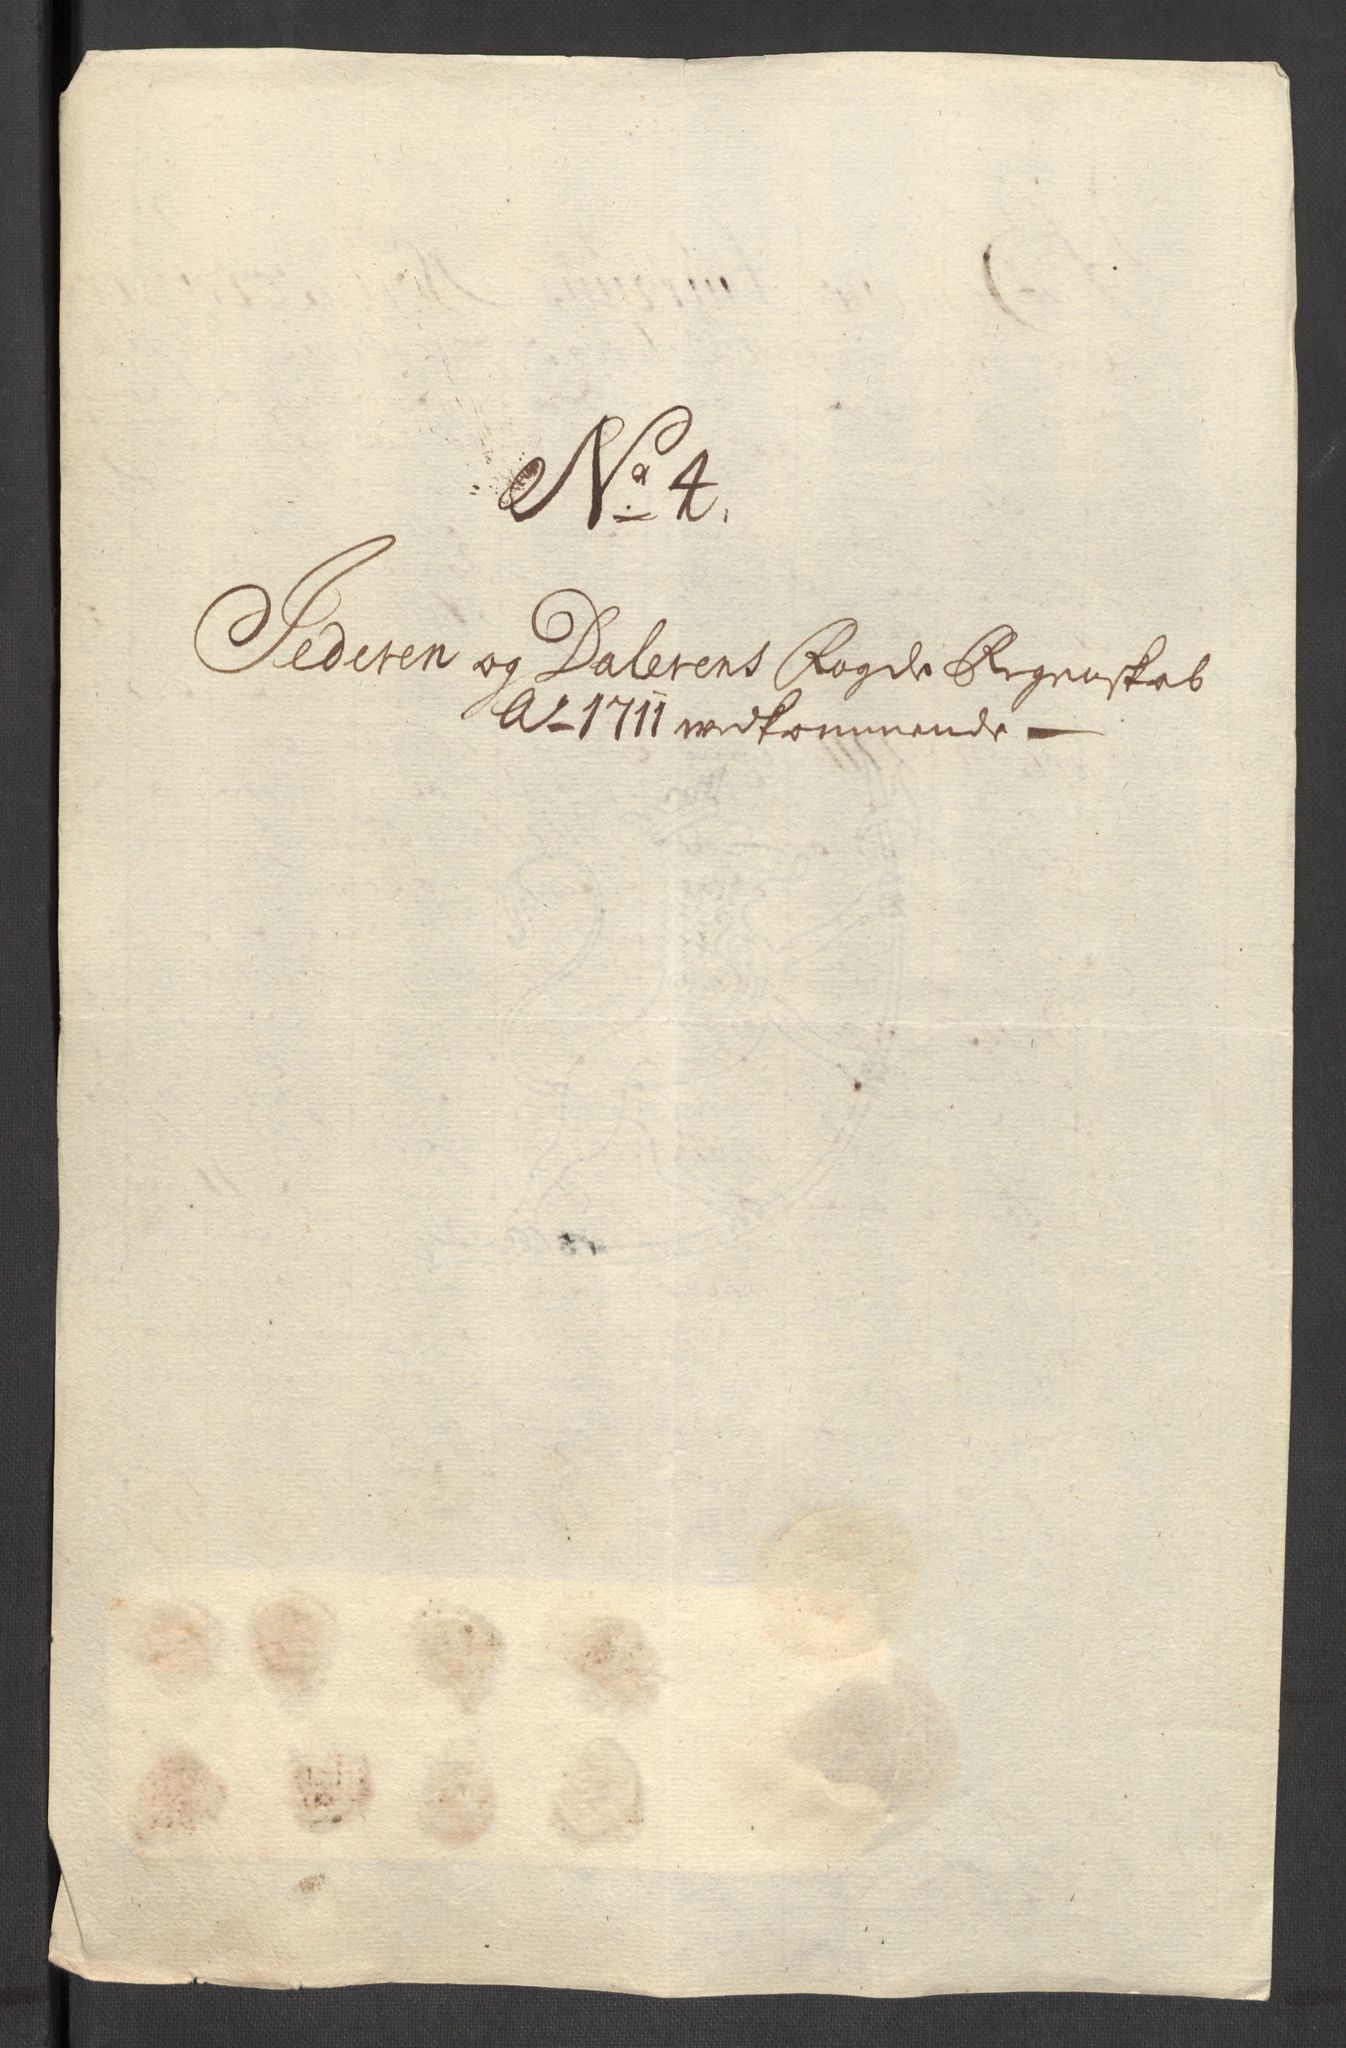 No 4.
Jederen og Dalerens Fogde Regenskab
Ao 1711 vedkommende